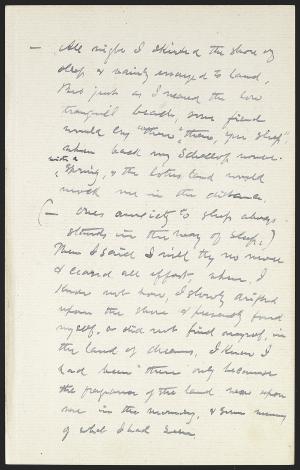 — All night I skirted the shore of
sleep & vainly essayed to land,
But just as I neared the low
tranquil beach, some fiend
would cry "there, there, you sleep",
when back my Shallop swere.
with a
spring, & the lotus land would
mock me in the distance.
(— One's anxiety to sleep always
stands in the way of sleep.)
Then I said I will try no more
& ceased all effort, when, I
know not how, I slowly drifted
upon the shore & presently found
myself, or did not find myself, in
the land of dreams, I knew I
had been there only because
the fragrance of the land was upon
me in the morning, & some memory
of what I had seen.